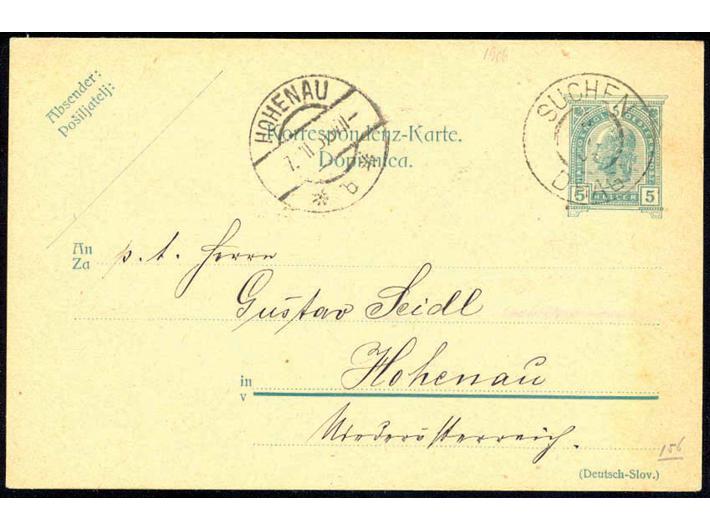 1906
Absender:
Pošiljatelj:
HOHENAU
7. II.
b
SUCHEN
DRAGA
5 HELLER 5
Korrespondenz-Karte.
Dopisnica.
An p. t. Herrn
Za
Gustav Seidl
in Hohenau
v
Niederösterreich.
156
(Deutsch-Slov.)